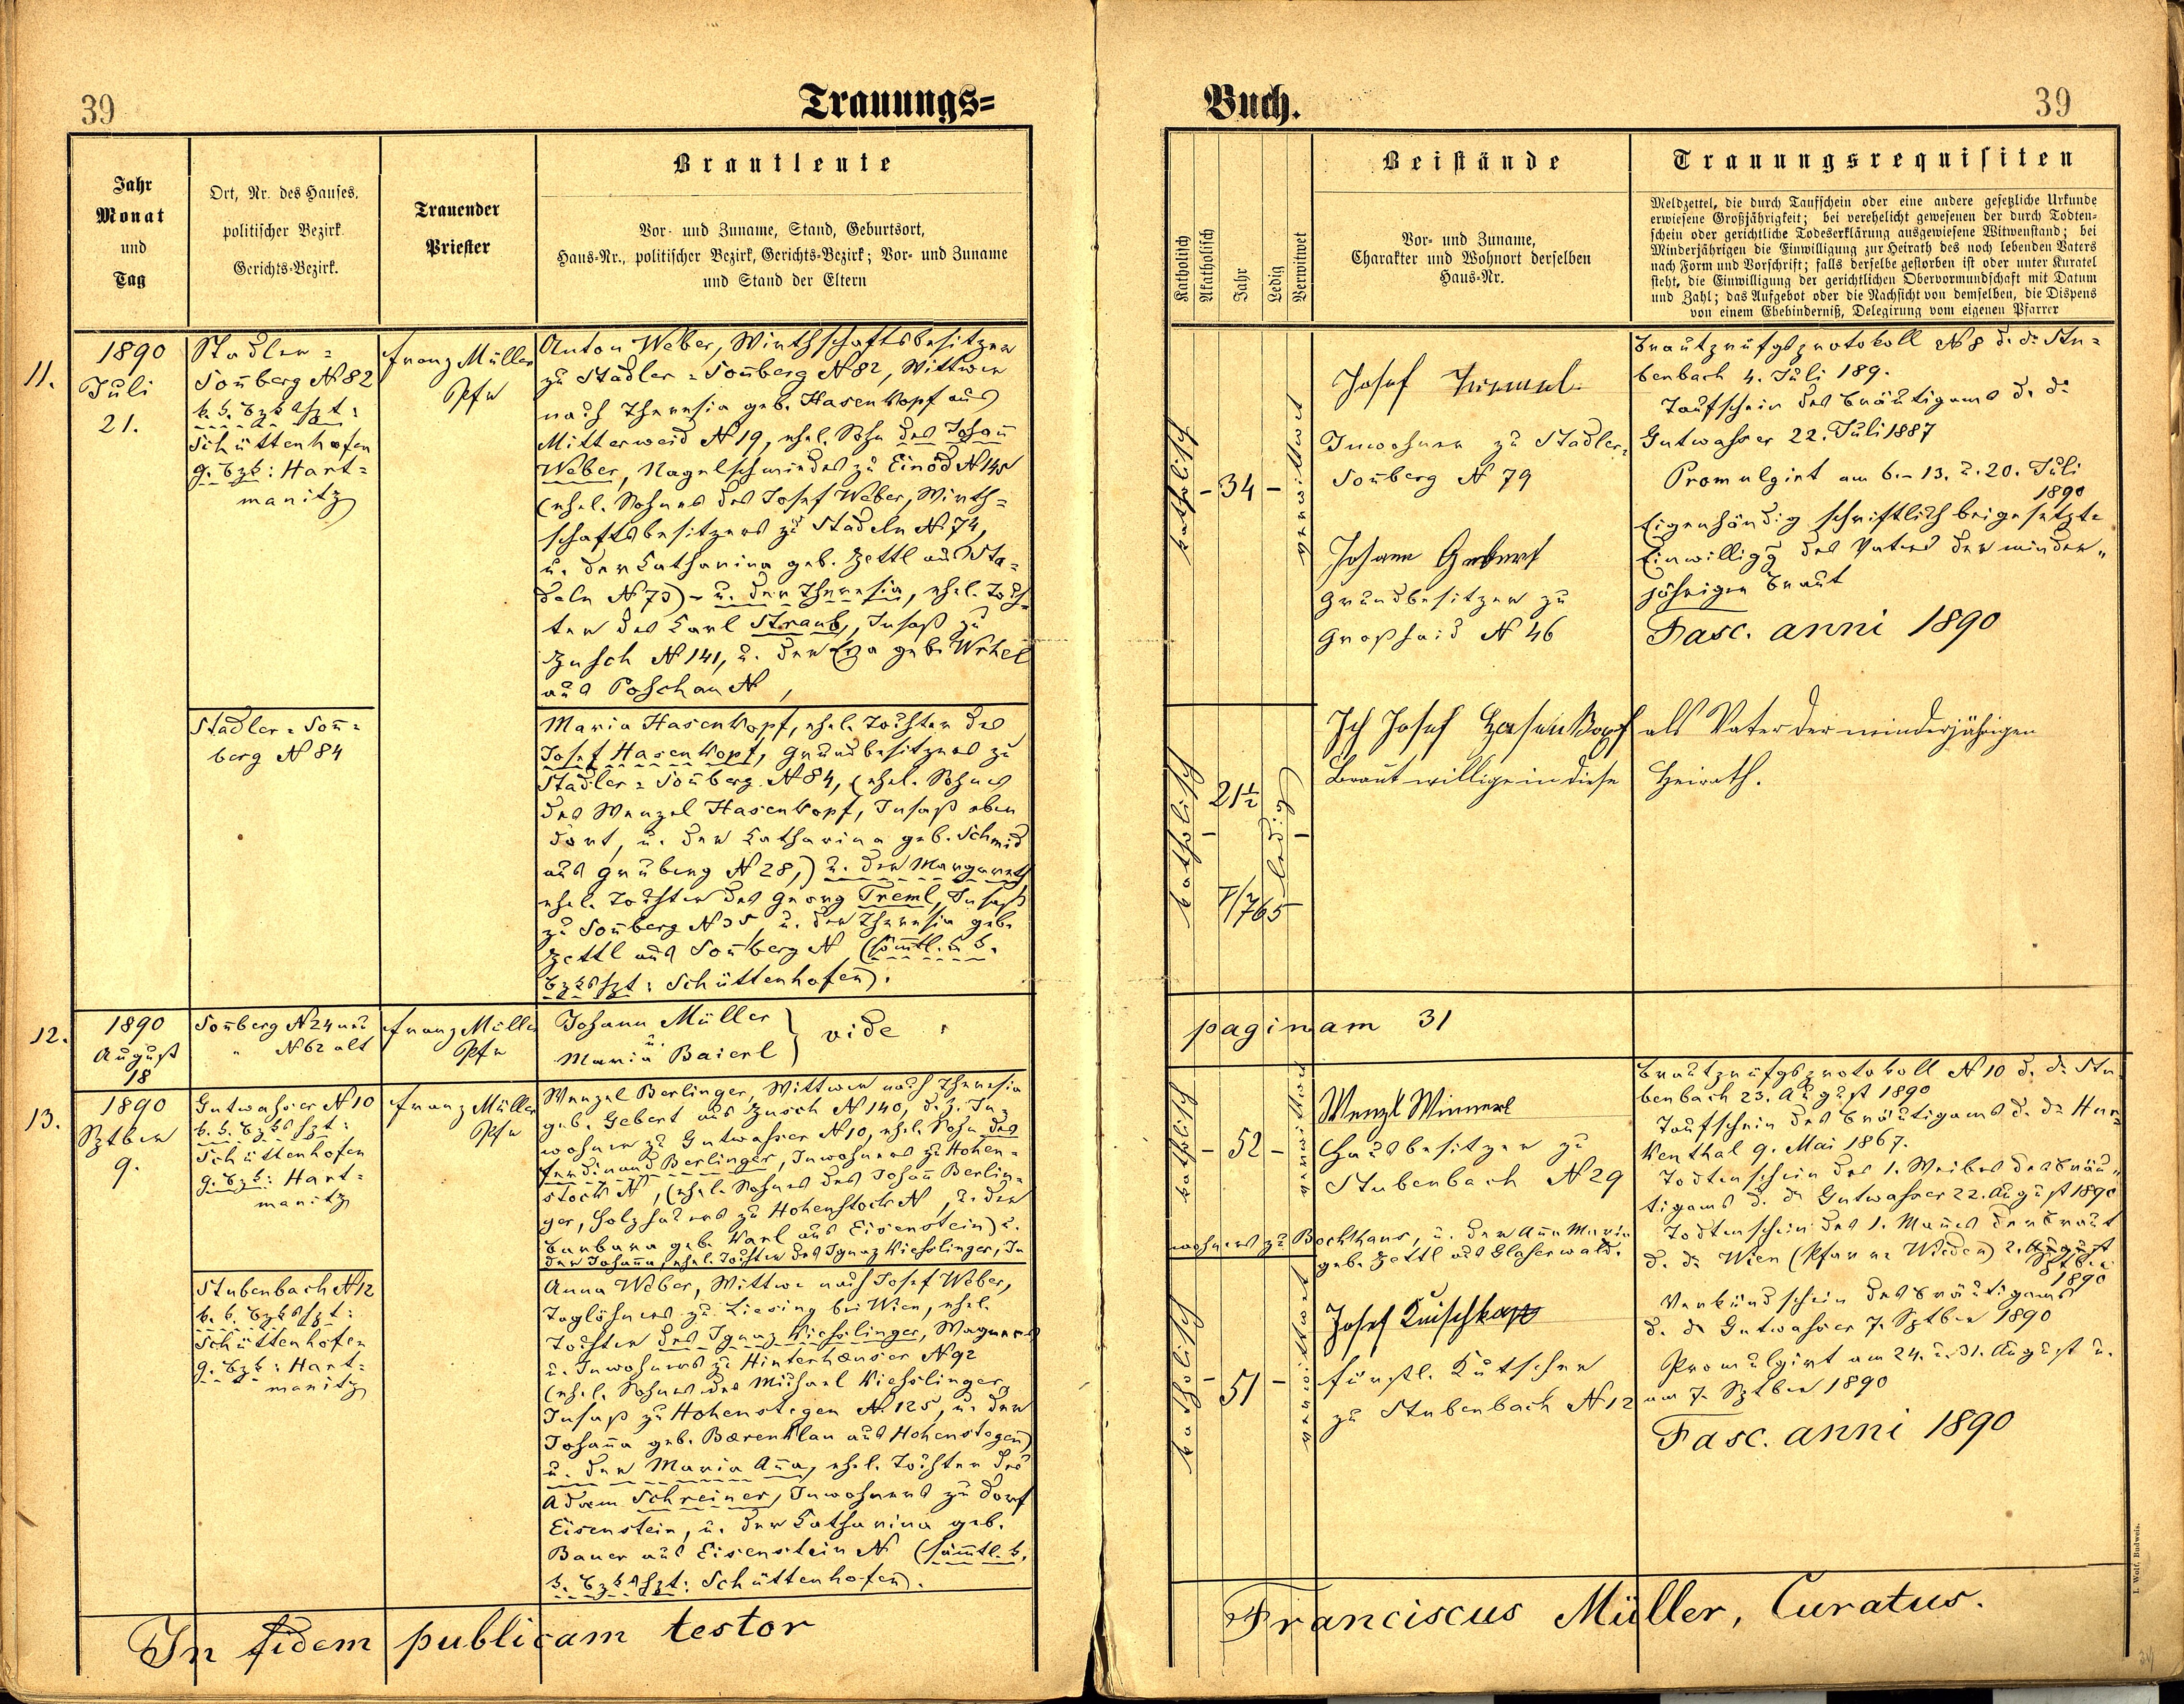 39
Trauungs=
Jahr
Monat
und
Tag
Ort, Nr. des Hauses,
politischer Bezirk
Gerichts-Bezirk.
Trauender
Priester
Brautleute
Vor- und Zuname, Stand, Geburtsort,
Haus-Nr., politischer Bezirk, Gerichts-Bezirk; Vor- und Zuname
und Stand der Eltern
11.
1890
Juli
21.
Stadler=
Son̄berg N 82
k. k. Bzkshpt:
Schüttenhofen
g. Bzk: Hart=
manitz
Franz Müller
Pfr
Anton Weber, Wirthschaftsbesitzer
zu Stadler=Son̄berg N 82, Wittwer
nach Theresia geb. Hasenkopf aus
Mitterweid N 19, ehel. Sohn des Johan̄
Weber, Nagelschmiedes zu Einöd N 145
(ehel. Sohnes des Josef Weber, Wirth=
schaftsbesitzers zu Stadeln N 74,
u. der Catharina geb. Zettl aus Sta=
deln N 73) - u. der Theresia, ehel. Toch=
ter des Carl Straub, Insaß zu
Zusch N 141, u. der Eva geb. Wehel
aus Poschau N ,
Stadler=Son̄=
berg N 84
Maria Hasenkopf, ehel. Tochter des
Josef Hasenkopf, Grundbesitzers zu
Stadler=Son̄berg N 84, (ehel. Sohnes
des Wenzel Hasenkopf, Insaß eben
dort, u. der Catharina geb. Schmid
aus Gruberg N 28,) u. der Margareth
ehel. Tochter des Georg Treml, Insaß
zu Son̄berg N 35, u. der Theresia geb.
Zettl aus Son̄berg N (sämtl. k. k.
Bzkshpt: Schüttenhofen).
12.
1890
August
18
Son̄berg N 24 neu
" N 62 alt
Franz Müller
Pfr
Johann Müller
u.
Maria Baierl
} vide
13.
1890
Sptber
9.
Gutwasser N 10
k. k. Bzkshpt:
Schüttenhofen
g. Bzk: Hart=
manitz
Franz Müller
Pfr
Wenzel Berlinger, Wittwer nach Theresia
geb. Gebert aus Zusch N 140, d. Z. In=
wohner zu Gutwasser N 10, ehel. Sohn des
Ferdinand Berlinger, Inwohners zu Hohen=
stock N , (ehel. Sohnes des Johan̄ Berlin=
ger, Holzhauers zu Hohenstock N , u. der
Barbara geb. Karl aus Eisenstein) u.
der Johan̄a, ehel. Tochter des Ignaz Kieslinger, In
Stubenbach N 12
k. k. Bzkshpt:
Schüttenhofen
g. Bzk: Hart=
manitz
Anna Weber, Wittwe nach Josef Weber,
Taglöhners zu Liesing bei Wien, ehel.
Tochter des Ignaz Kieslinger, Wagners
u. Inwohners zu Hinterhæuser N 92
(ehel. Sohnes des Michael Kieslinger
Insaß zu Hohenstegen N. 125, u. der
Johan̄a geb. Bærenklau aus Hohenstegen)
u. der Maria An̄a, ehel. Tochter des
Adam Schreiner, Inwohners zu Dorf
Eisenstein, u. der Catharina geb.
Bauer aus Eisenstein N (sämtl. k.
k. Bzkshpt: Schüttenhofen).
In fidem publicam testor
Buch.
39
Katholisch
Akatholisch
Jahr
Ledig
Verwitwet
Beistände
Vor- und Zuname,
Charakter und Wohnort derselben
Haus-Nr.
Trauungsrequisiten
Meldzettel, die durch Taufschein oder eine andere gesetzliche Urkunde
erwiesene Großjährigkeit; bei verehelicht gewesenen der durch Todten-
schein oder gerichtliche Todeserklärung ausgewiesene Witwenstand; bei
Minderjährigen die Einwilligung zur Heirath des noch lebenden Vaters
nach Form und Vorschrift; falls derselbe gestorben ist oder unter Kuratel
steht, die Einwilligung der gerichtlichen Obervormundschaft mit Datum
und Zahl; das Aufgebot oder die Nachsicht von demselben, die Dispens
von einem Ehehinderniß, Delegirung vom eigenen Pfarrer
katholisch
- 34 -
verwittwet
Josef
Inwohner zu Stadler=
Son̄berg N 79
Johann Gebert
Grundbesitzer zu
Großhaid N 46
Brautprüfgsprotokoll N 8 d. d. Stu=
benbach 4. Juli 189.
Taufschein des Bräutigams d. d.
Gutwasser 22. Juli 1887
Promulgirt am 6.- 13. u. 20. Juli
1890
Eigenhändig schriftlich beigesetzte
Einwilligg des Vaters der minder=
jährigen Braut
Fasc. anni 1890
katholisch
21½
ledig
I/765
Ich Josef Hasenkopf als Vater der minderjährigen
Braut willige in diese Heirath.
paginam 31
katholisch
- 52 -
verwittwet
Wenzl Wimmerl
Hausbesitzer zu
Stubenbach N 29
wohners zu Bockhaus, u. der An̄a Maria
geb. Zettl aus Glaserwald.
Brautprüfgsprotokoll N 10 d. d. Stu
benbach 23. August 1890
Taufschein des Bräutigams d. d. Hur=
kenthal 9. Mai 1867.
Todtenschein des 1. Weibes des Bräu=
tigams d. d. Gutwasser 22. August 1890
Todtenschein des 1. Man̄es der Braut
d. d. Wien (Pfarre Wieden) 2. August
Sptber
1890
Verkündschein des Bräutigams
d. d. Gutwasser 7. Sptber 1890
Promulgirt am 24. u. 31. August u.
am 7. Sptber 1890
Fasc. anni 1890
katholisch
- 51 -
verwittwet
Josef
fürstl. Kutscher
zu Stubenbach N 12
Franciscus Müller, Curatus.
I. Wolf, Budweis.